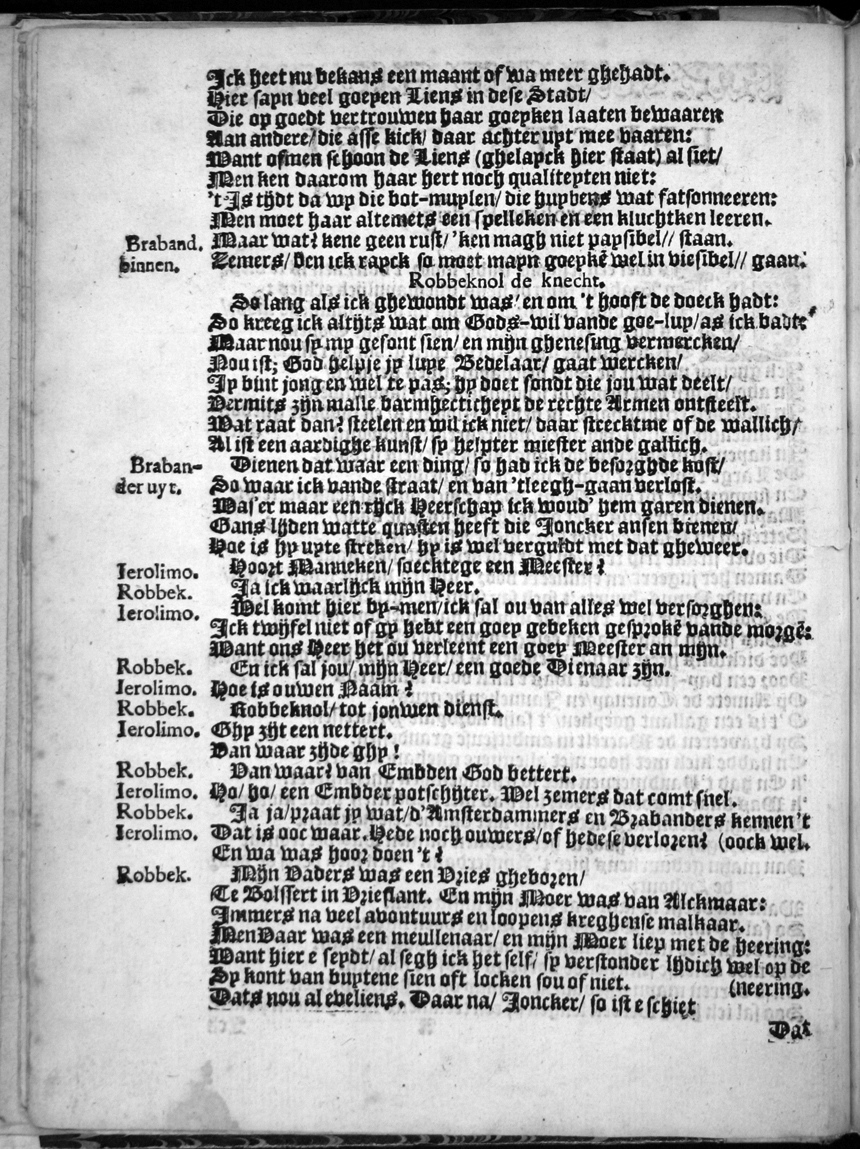 Ick heet nu bekans een maant of wa meer ghehadt.
Hier sayn veel goeyen Liens in dese Stadt/
Die op goedt vertrouwen haar goeyken laaten bewaaren
Aan andere/ die asse kick/ daar achter uyt mee vaaren:
Want ofmen schoon de Liens (ghelayck hier staat) al siet/
Men ken daarom haar hert noch qualiteyten niet:
't Is tijdt da wy die bot-muylen/ die huybens wat fatsonneeren:
Men moet haar altemets een spelleken en een kluchtken leeren.
Maar wat? kene geen rust/ 'ken magh niet paysibel// staan.
Braband. binnen. Zemers/ den ick rayck so moet mayn goeykē wel in viesibel// gaan.
Robbeknol de knecht.
So lang als ick ghewondt was/ en om 't hooft de doeck hadt:
So kreeg ick altijts wat om Gods-wil vande goe-luy/ as ick badt:
Maar nou sy my gesont sien/ en mijn ghenesing vermercken/
Nou ist; God helpje jy luye Bedelaar/ gaat wercken/
Jy bint jong en wel te pas; hy doet sondt die jou wat deelt/
Vermits zijn malle barmhertichept de rechte Armen ontsteelt.
Wat raat dan? steelen en wil ick niet/ daar strecktme of de wallich/
Al ist een aardighe kunst/ sy helpter miester ande gallich.
Dienen dat waar een ding/ so had ick de besorghde kost/
Braban-der uyt. So waar ick vande straat/ en van 'tleegh-gaan verlost.
Was'er maar een rijck Heerschap ick woud' hem garen dienen.
Gans lijden watte quasten heeft die Joncker ansen bienen/
Hoe is hy upte streken/ hy is wel verguldt met dat gheweer.
Ierolimo. Hoort Manneken/ soecktege een Meester?
Robbek. Ja ick waarlijck mijn Heer.
Ierolimo. Wel komt hier by-men/ ick sal ou van alles wel versorghen:
Ick twijfel niet of gy hebt een goey gebeken gesprokē vande morgē:
Want ons Heer het ou verleent een goey Meester an mijn.
Robbek. En ick sal jou/ mijn Heer/ een goede Dienaar zijn.
Ierolimo. Hoe is ouwen Naam?
Robbek. Robbeknol/ tot jonwen dienst.
Ierolimo. Ghy zijt een nettert.
Van waar zijde ghy!
Robbek. Van waar? van Embden God bettert.
Ierolimo. Ho/ ho/ een Embder potschijter. Wel zemers dat comt snel.
Robbek. Ja ja/ praat jy wat/ d'Amsterdammers en Brabanders kennen 't
(oock wel.
Ierolimo. Dat is ooc waar. Hede noch ouwers/ of hedese verloren?
En wa was hoor doen 't?
Robbek. Mijn Vaders was een Vries gheboren/
Te Bolssert in Vrieslant. En mijn Moer was van Alckmaar:
Immers na veel avontuurs en loopens kreghense malkaar.
MenVaar was een meullenaar/ en mijn Moer liep met de heering:
Want hier e seydt/ al segh ick het self/ sy verstonder lijdich wel op de
(neering.
Sy kont van buytene sien oft locken sou of niet.
Dats nou al eveliens. Daar na/ Joncker/ so ist e schiet
Dat